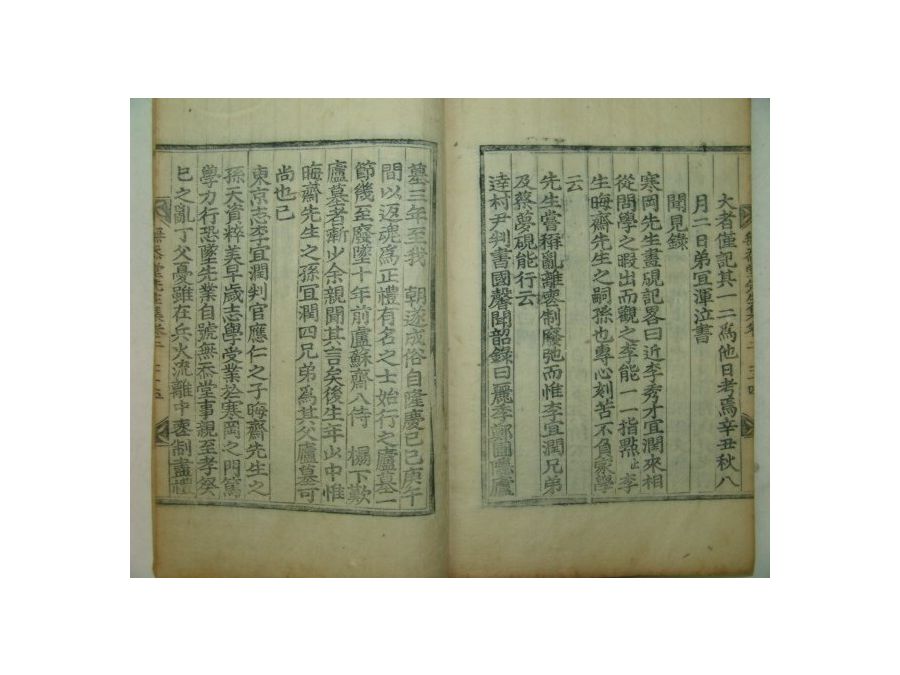 大者僅記其一二爲他日考焉辛丑秋八
月二日弟宜渾泣書
聞見錄
寒岡先生畫硯記畧曰近李秀才宜潤來相
從問學之暇出而觀之李能一一指點止李
生晦齋先生之嗣孫也專心刻苦不負家學
云
先生嘗稱亂離喪制廢弛而惟李宜潤兄弟
及蔡夢硯能行云
逹村尹判書國馨聞韶錄曰麗季鄭圃隱廬
墓三年至我 朝遂成俗自隆慶己巳庚午
間以返魂爲正禮有名之士始行之廬墓一
節幾至廢墜十年前盧蘇齋入侍 榻下歎
廬墓者漸少余親聞其言矣後生年少中惟
晦齋先生之孫宜潤四兄弟爲其父廬墓可
尚也已
東京志李宜潤判官應仁之子晦齋先生之
孫天資粹美早歲志學受業於寒岡之門篤
學力行恐墜先業自號無忝堂事親至孝癸
巳之亂丁父憂雖在兵火流離中喪制盡禮
無忝堂先生集卷二 二十五